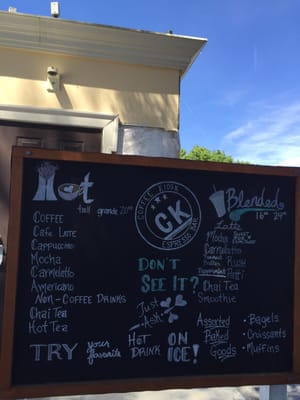 Hot
tall grande 20oz
COFFEE
Cafe LATTE
Cappuccino
Mocha
Carmeletto
Americano
Non-COFFEE DRINKS
Chai Tea
Hot Tea
TRY your favorite HOT DRINK ON ICE!
COFFEE KIOSK
CK
ESPRESSO BAR
DON'T
SEE IT?
Just
Ask
Blended
16oz 24oz
Latte
Mocha
Carmeletto
Peanut Butter RUSH
Peppermint Patti
Chai Tea
Smoothie
Assorted
Baked
Goods
• Bagels
• Croissants
• Muffins